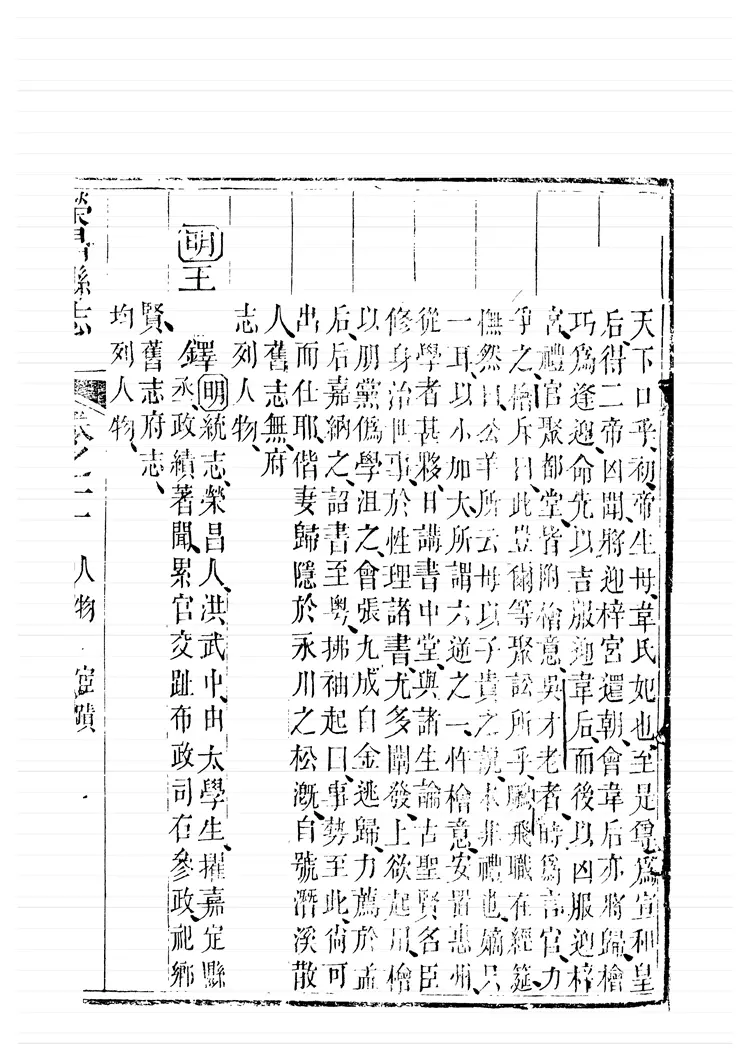 天下口乎、初、帝生母、韋氏妃也、至是尊爲宣和皇
后、得二帝凶聞、將迎梓宮還朝、會韋后亦將歸、檜
巧爲逢迎、命先以吉服迎韋后、而後以凶服迎梓
宮、禮官聚都堂、皆附檜意、吳才老者、時爲言官、力
爭之、檜斥曰、此豈爾等聚訟所乎、飛職在經筵
憮然曰、公羊所云母以子貴之說、本非禮也、嫡只
一耳、以小加大、所謂六逆之一、忤檜意、安置惠州、
從學者甚夥、日講書中堂、與諸生論古聖賢名臣
修身治世事、於性理諸書、尤多闡發、上欲起用、檜
以朋黨僞學沮之、會張九成自金逃歸、力薦於孟
后、后嘉納之、詔書至粵、拂袖起曰、事勢至此、尙可
出而仕耶、偕妻歸隱於永川之松漑、自號潛溪散
人、舊志無、府
志列人物、
明王
鐸 明統志、榮昌人、洪武中、由太學生、擢嘉定縣
丞、政績著聞、累官交趾布政司右參政、祀鄉
賢、舊志府志、
均列人物、
榮昌縣志 卷之十一 人物 宦蹟